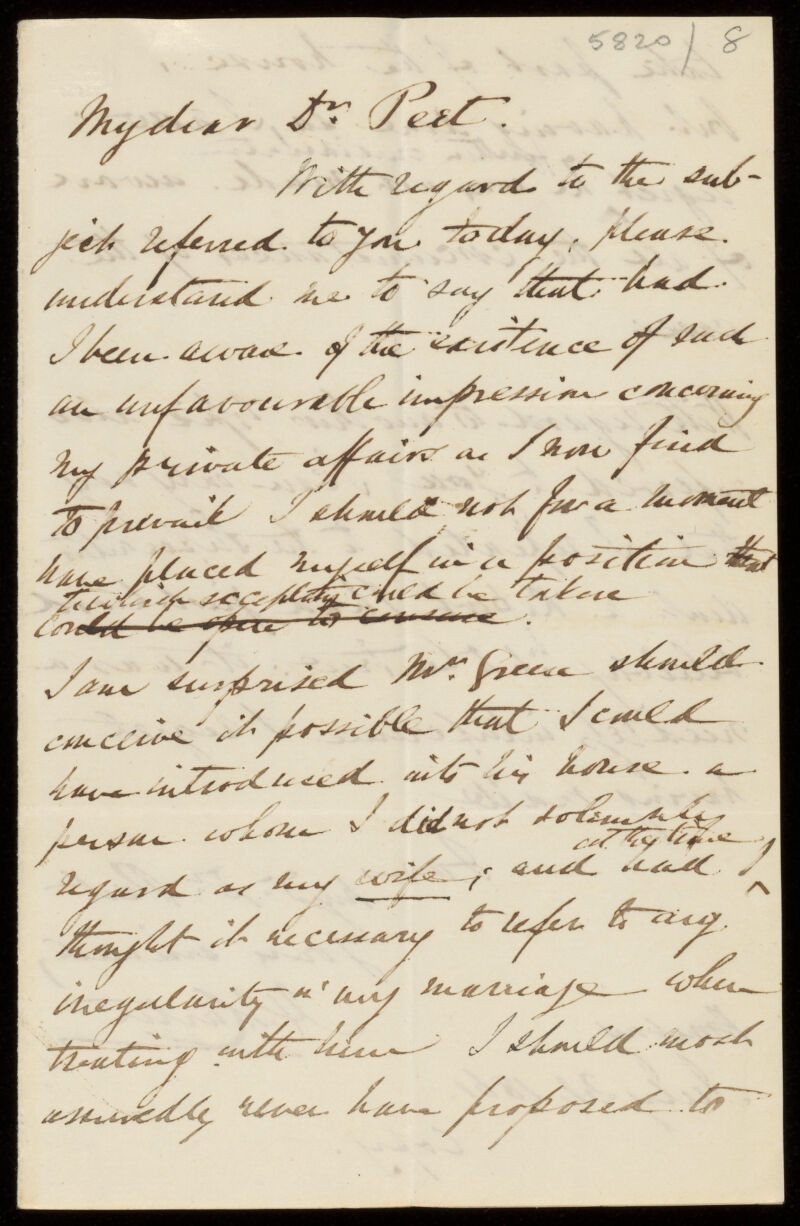 5820/8
My dear Dr. Peet.
With regard to the sub-
ject referred to you today, please
understand me to say that had
I been aware of the existence of such
an unfavourable impression concerning
my private affairs as I now find
to prevail I should not for a moment
have placed myself in a position that
to which exception could be taken
could be open to censure.
I am surprised Mr. Green should
conceive it possible that I could
have introduced into his house a
person whom I did not solemnly
at the time
regard as my wife; and had I
thought it necessary to refer to any
irregularity in my marriage when
treating with him I should most
assuredly never have proposed to